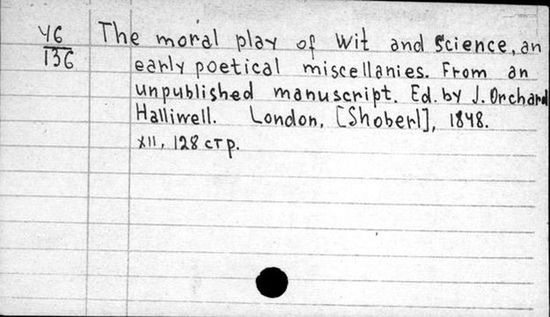 46
136
The moral play of Wit and Science, an
early poetical miscellanies. From an
unpublished manuscript. Ed. by J. Orchard
Halliwell. London, [Shoberl], 1848.
XII, 128 стр.